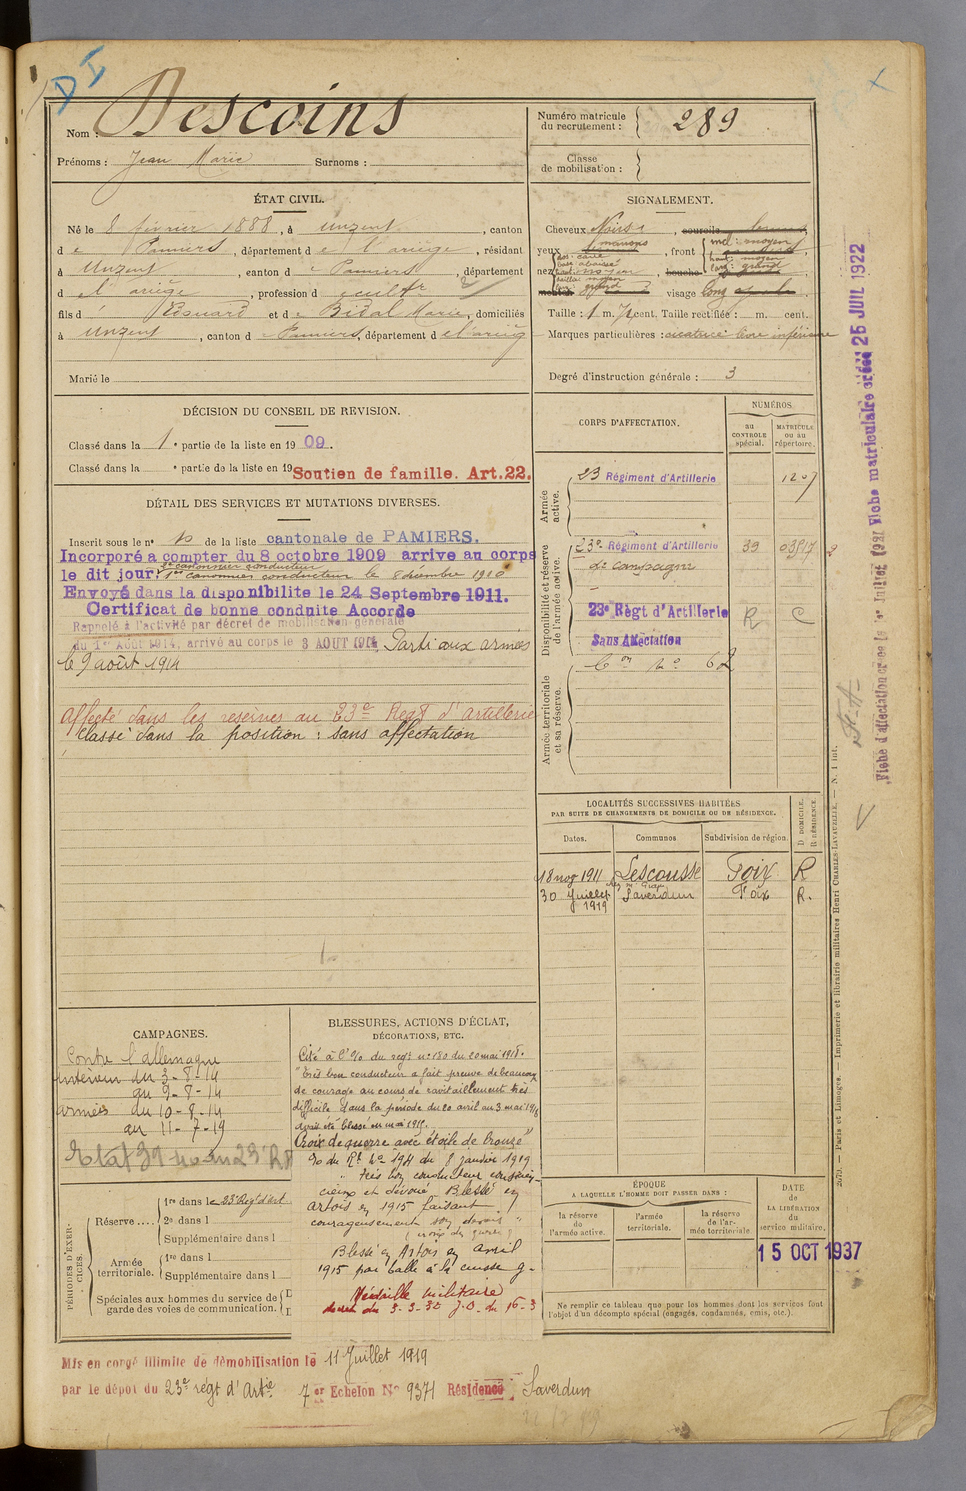 D I
Nom : Descoins
Prénoms : Jean Marie Surnoms :
Numéro matricule
du recrutement : 289
Classe
de mobilisation :
ÉTAT CIVIL.
Né le 8 février 1888, à Unzent, canton
de Pamiers, département de l'ariège, résidant
à Unzent, canton de Pamiers, département
d el'ariège, profession de cultr
fils d et de Bidal Marie, domiciliés
à Unzent, canton de Pamiers, département de l'ariège
Marié le
SIGNALEMENT.
Cheveux Noirs, sourcils
yeux marrons, front incl: moyen
haut: moyen
larg: grande
nez dos: cave
base abaissé
haut: moyen
saillie moyen
larg: grand
bouche
menton visage long
Taille : 1 m. 72 cent. Taille rectifiée : m. cent.
Marques particulières : cicatrice lèvre inférieure
Degré d'instruction générale : 3
DÉCISION DU CONSEIL DE REVISION.
Classé dans la 1e partie de la liste en 1909.
Classé dans la e partie de la liste en 19 Soutien de famille. Art.22.
DÉTAIL DES SERVICES ET MUTATIONS DIVERSES.
Inscrit sous le n° 10 de la liste cantonale de PAMIERS.
Incorporé a compter du 8 octobre 1909 arrive au corps
2e cannonier conducteur
le dit jour. 1er canonnier conducteur le 8 décembre 1910
Envoyé dans la disponibilite le 24 Septembre 1911.
Certificat de bonne conduite Accorde
Rappelé à l'activité par décret de mobilisation générale
du 1er Août 1914, arrivé au corps le 3 AOUT 1914 Parti aux armées
le 9 août 1914
Affecté dans les reserves au 23e Regt d'Artillerie
Classé dans la position : sans affectation
CORPS D'AFFECTATION.
NUMÉROS
au
CONTROLE
spécial.
MATRICULE
ou au
répertoire.
Armée
active.
23 Régiment d'Artillerie 1207
Disponibilité et réserve
de l'armée active.
23e Régiment d'Artillerie 39
de campagne
23e Règt d'Artillerie R C
Sans Affectation
Armée territoriale
et sa réserve.
LOCALITÉS SUCCESSIVES HABITÉES
PAR SUITE DE CHANGEMENTS DE DOMICILE OU DE RÉSIDENCE.
Dates. Communes Subdivision de région.
D DOMICILE.
R RÉSIDENCE.
18 nov 1911 Lescousse Foix R
30 Juillet
1919 Saverdun Foix R.
CAMPAGNES.
Contre l'allemagne
intérieur du 3-8-14
au 9-8-14
armées du 10-8-14
au 11-7-19
BLESSURES, ACTIONS D'ÉCLAT,
DÉCORATIONS, ETC.
Cité à l'O/o du regt n° 180 du 20 mai 1918.
"Très bon conducteur a fait preuve de beaucoup
de courage au cours de ravitaillement très
difficile dans la période du 20 avril au 3 mai 1918
avait été blessé en mai 1915.
Croix de guerre avec étoile de bronze"
O/o du Rt No 194 du 8 janvier 1919
"très bon conducteur conscien-
cieux et dévoué. Blessé en
artois en 1915 faisant
courageusement son devoir"
(croix de guerre)
Blessé en Artois en avril
1915 par balle à la cuisse g.
Médaille militaire
decret du 3-3-32 J.O. du 16-3
PÉRIODES D'EXER-
CICES.
Réserve....
1re dans le 23e Regt d'Art
2e dans l
Supplémentaire dans l
Armée
territoriale.
1re dans l
Supplémentaire dans l
Spéciales aux hommes du service de
garde des voies de communication.
D
D
ÉPOQUE
A LAQUELLE L'HOMME DOIT PASSER DANS :
la réserve
de
l'armée active.
l'armée
territoriale.
la réserve
de l'ar-
mée territoriale
DATE
de
LA LIBÉRATION
du
service militaire.
15 OCT 1937
Ne remplir ce tableau que pour les hommes dont les services font
l'objet d'un décompte spécial (engagés, condamnés, omis, etc.).
Mis en congé illimité de démobilisation le 11 Juillet 1919
par le dépôt du 23e régt d'Artie 7er Echelon N° 9371 Résidence Saverdun
2679. — Paris et Limoges. — Imprimerie et librairie militaires Henri CHARLES-LAVAUZELLE. — N. 1 int.
Fiche d'affectation créée le 1er Juillet 1921 Fiche matriculaire créée 25 JUIL 1922